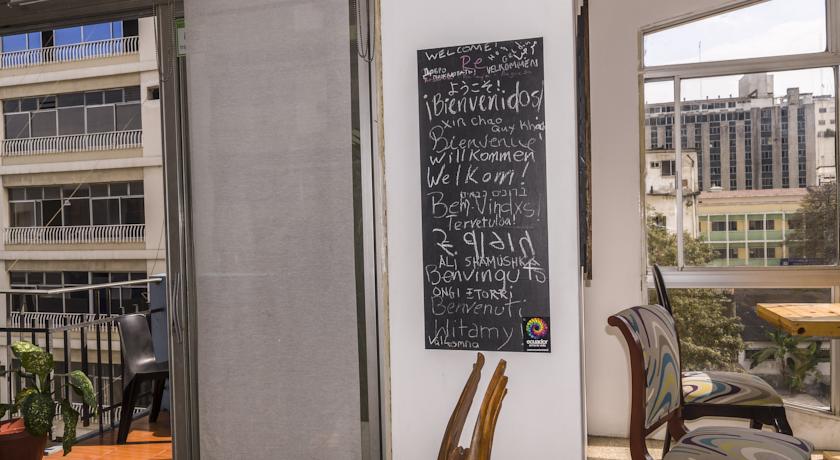 WELCOME!
VELKOMMEN
ようこそ!
¡Bienvenidos!
xin chao
Quy Khach
Bienvenue!
Willkommen
Welkom!
ברוכים הבאים
Bem-Vindxs!
Tervetuloa!
ALI SHAMUSHKA
Benvinguts
ONGI ETORRI
Benvenuti
Witamy!
Välkomna
ecuador